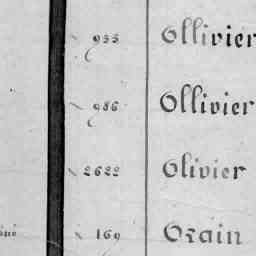 933 Ollivier
986 Ollivier
2622 Olivier
169 Ozain